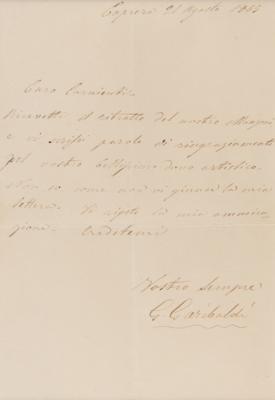 Caprera 21 Agosto 1865
Caro Carmienti
Ricevetti il ritratto del nostro Mazzini
e vi scrissi parole di ringraziamento
pel vostro bellissimo dono artistico.
Non so come non vi giunse la mia
lettera. Vi ripeto la mia ammira
zione. Credetemi
Vostro sempre
G. Garibaldi